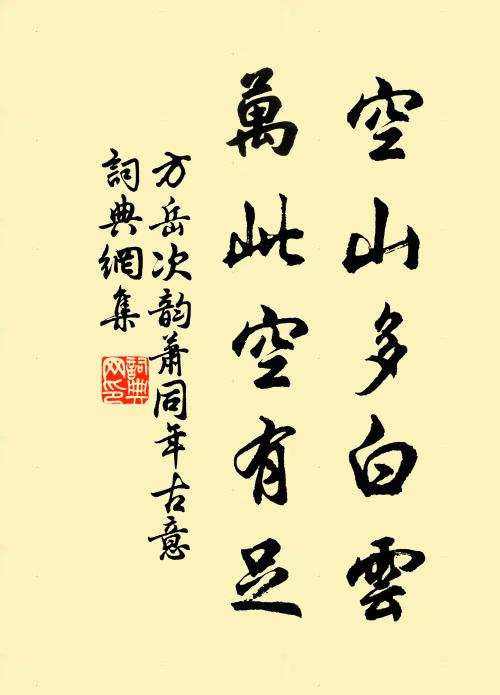 空山多白雲
萬此空有足
方岳次韵蕭同年古意
詞典網集
詞典網印